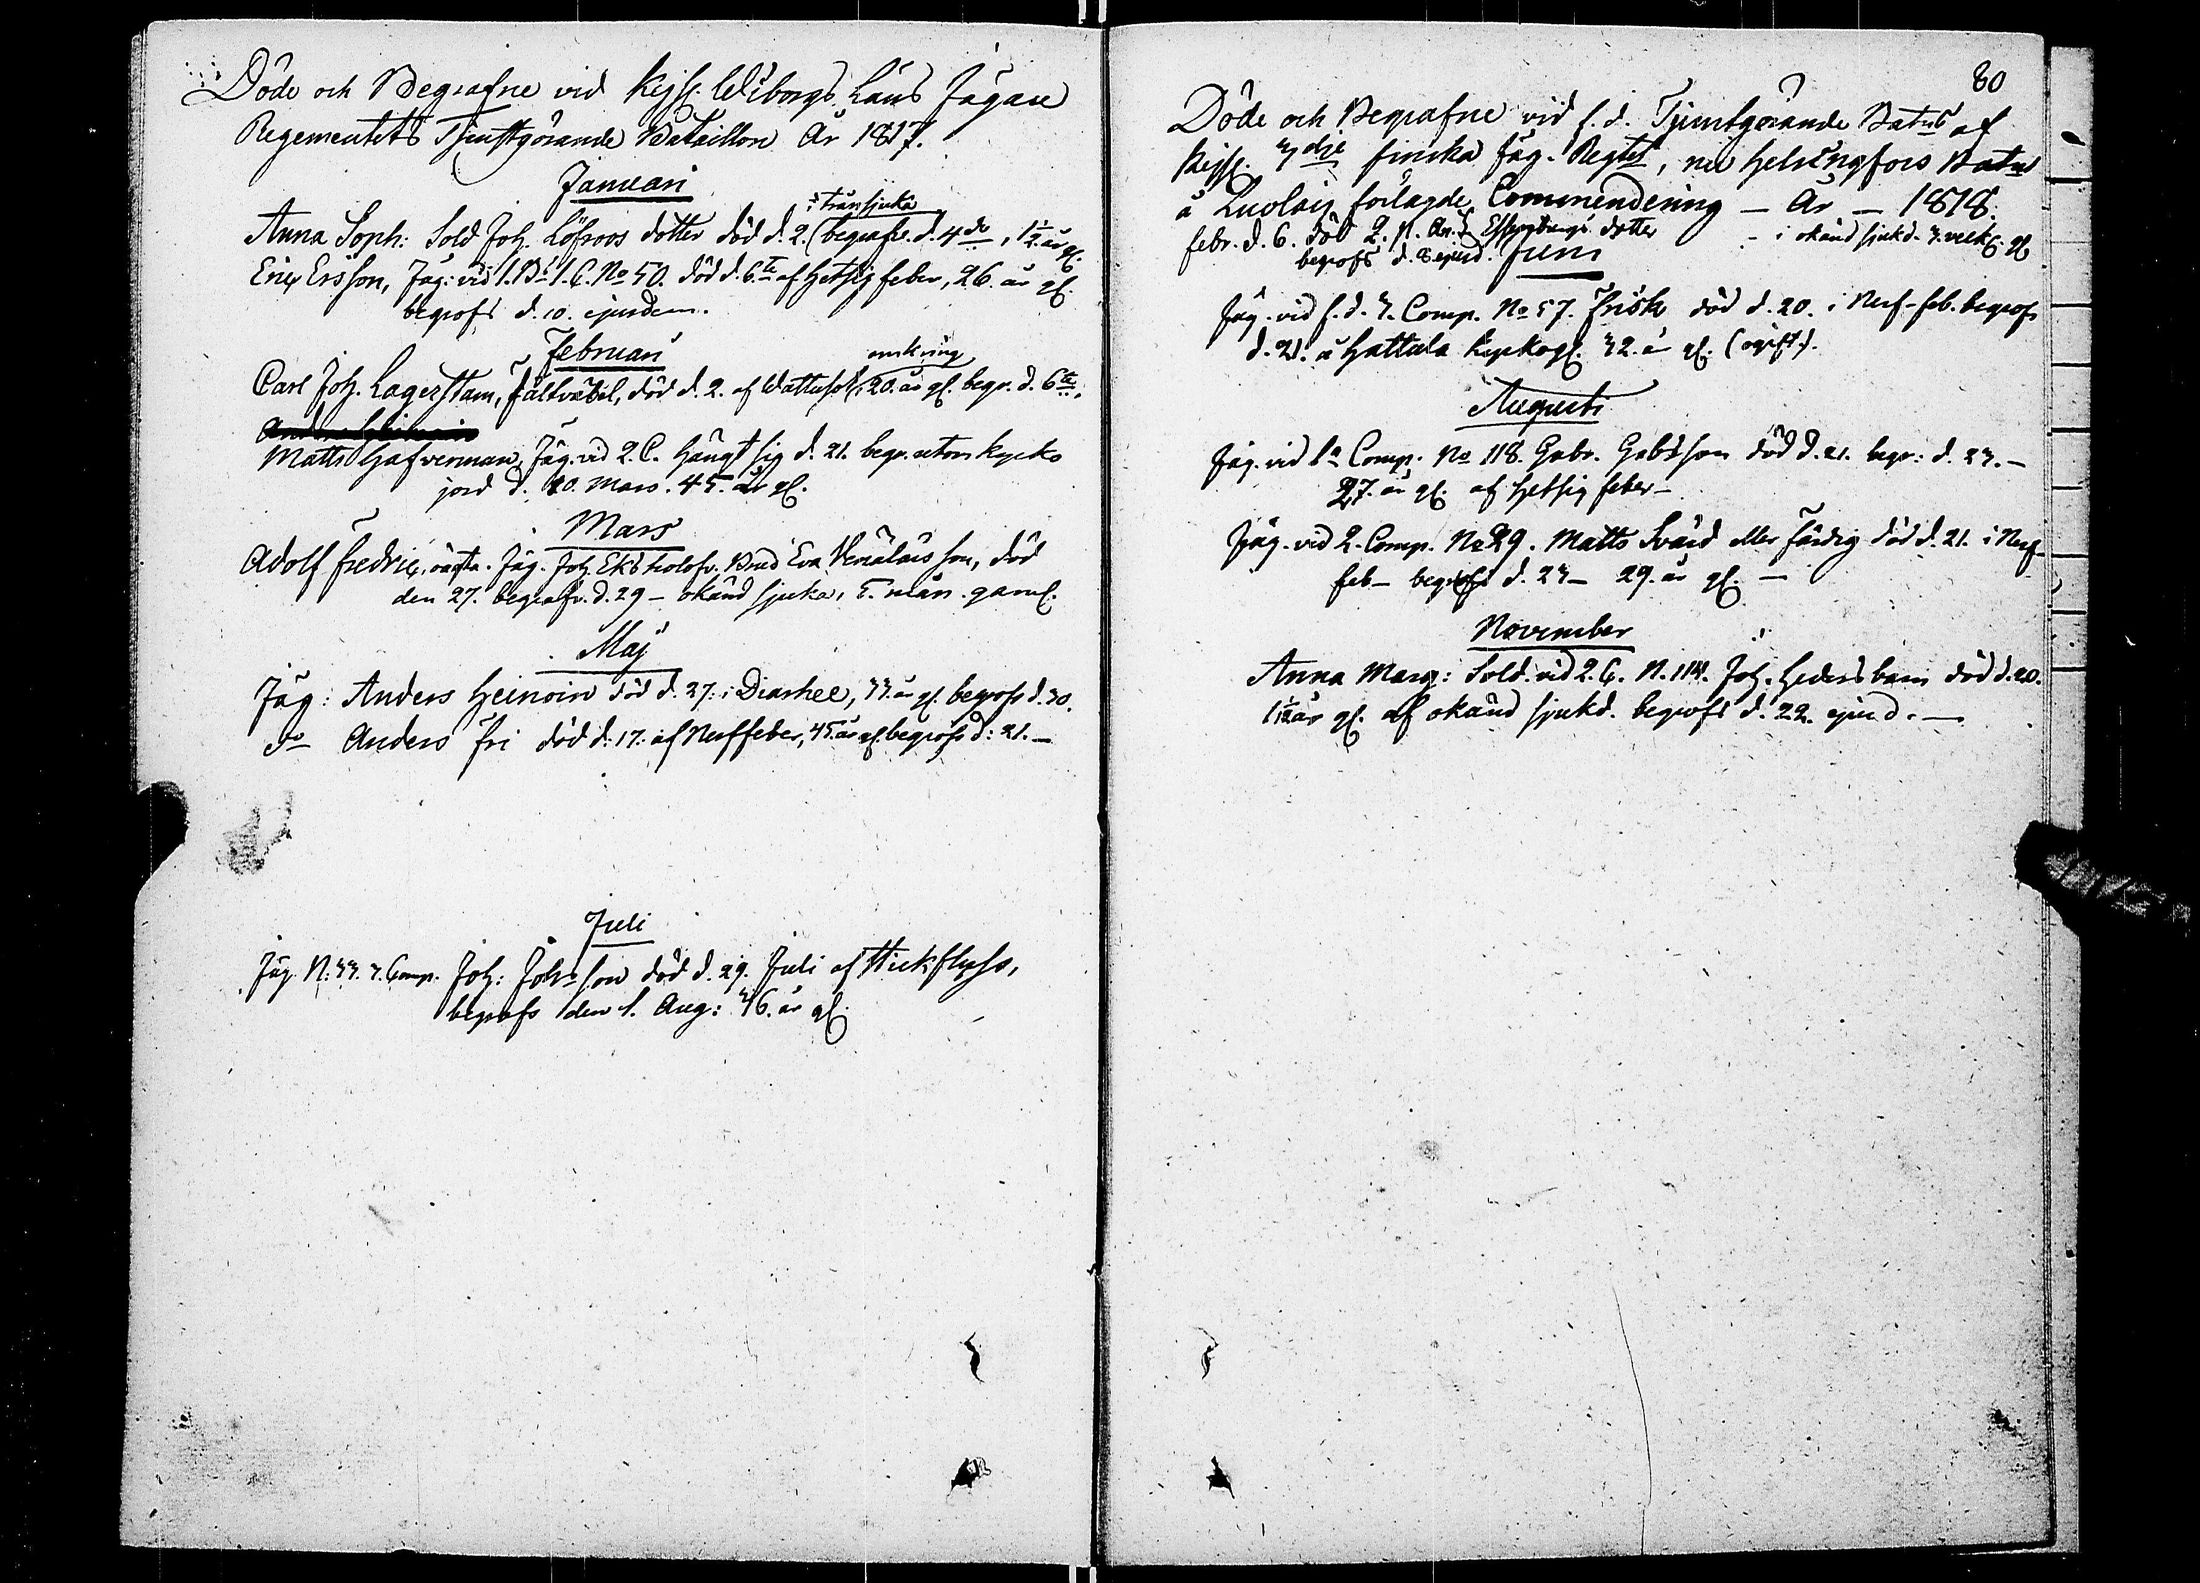 Döde och Begrafne vid Kejs. Wiborgs Läns Jägare
Regementets Tjenstgörande Bataillon År 1817.
Januari
i transjuka
Anna Soph: Sold. Joh. Löfroos dotter död d. 2. (begrafv. d. 4de, 1 1/2 år gl.
Eric Ersson, Jäg: vid 1. B. 1. C. No 50. död d. 6te af Hetsig feber, 26. år gl.
begrofs d. 10. ejusdem.
Februari
omkring
Carl Joh. Lagerstam, Fältväbel, död d. 2. af Wattusot, 20. år gl. begr. d. 6te.
Matts Hafverman, Jäg. vid 2. C. Hängt sig d. 21. begr. utom kyrko
jord d. 20. Mars. 45. år gl.
Mars
Adolf Fredric, oäkta. Jäg. Joh. Ekeholofs. Brud Eva son, död
den 27. begrafv. d. 29 – okänd sjuka, 5. mån. gaml.
Maj
Jäg: Anders Heinoin död d. 27. i Diarhee, 33. år gl. begrofs d. 30.
Do Anders Fri död d. 17. af Nerffeber, 45. år gl. begrofs d. 21. –
Juli
Jäg. N. 33. 3. Comp. Joh: Johsson död d. 29. Juli af Stickflyss,
begrofs den 1. Aug: 36. år gl.
80
Döde och Begrafne vid f. d. Tjenstgörande Batns af
Kejs. 3dje Finska Jäg. Regtet, nu Helsingfors Batns
å förlagde Commendering – År – 1818.
Febr. d. 6. död 2. dotter – i okänd sjukd. 3. veck. gl
begrofs d. 8 ejusd.
Juni
Jäg. vid f. d. 3. Comp. No 57. Frisk död d. 20. i Nerf-feb. begrofs
d. 21. å Hattula kyrkogl. 32. år gl. (ogift).
Augusti
Jäg. vid 1a Comp. No 118. Gabr. Gabsson död d. 21. begr: d. 23. –
27. år gl. af Hetsig feber –
Jäg. vid 2. Comp. No 29. Matts Svärd eller Färdig död d. 21. i Nerf-
feb – begrofs d. 23 – 29. år gl. –
November
Anna Marg: Sold. vid 2. C. N. 114. Joh. Heders barn död d. 20.
1 1/12 år gl. af okänd sjukd. begrofs d. 22. ejusd. –